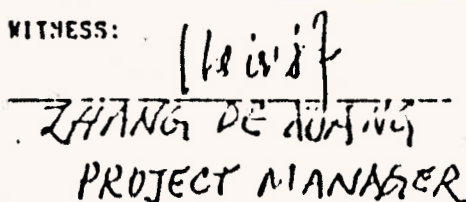 WITNESS:
ZHANG DE
PROJECT MANAGER